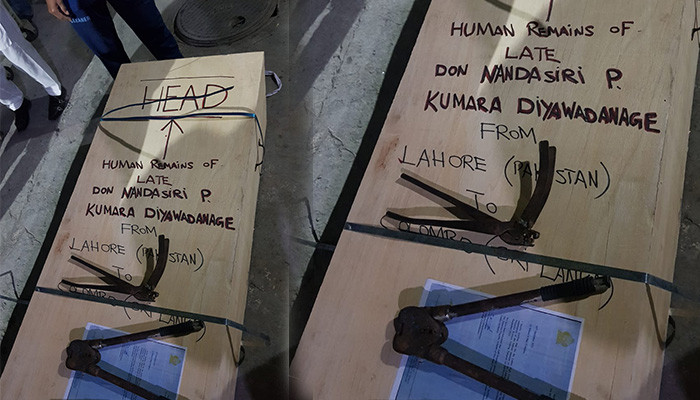 HEAD
HUMAN REMAINS OF
LATE
DON NANDASIRI P.
KUMARA DIYAWADANAGE
FROM
LAHORE (PAKISTAN)
TO
COLOMBO (SRI LANKA)
HUMAN REMAINS OF
LATE
DON NANDASIRI P.
KUMARA DIYAWADANAGE
FROM
LAHORE (PAKISTAN)
TO
COLOMBO (SRI LANKA)